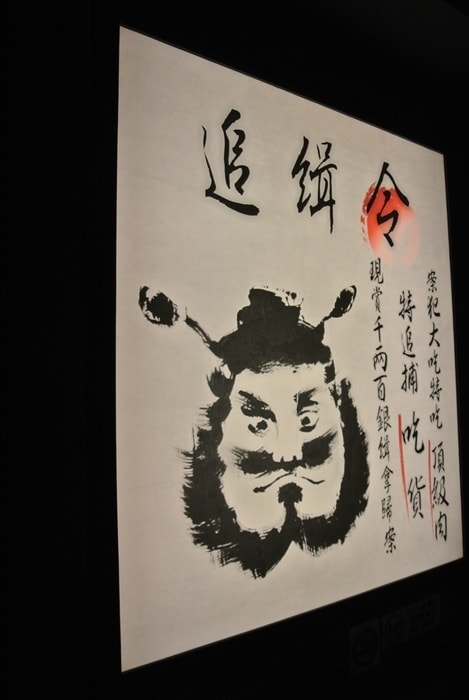 追缉令
案犯大吃特吃頂級肉
特追捕吃货
現賞千两百銀缉拿歸案